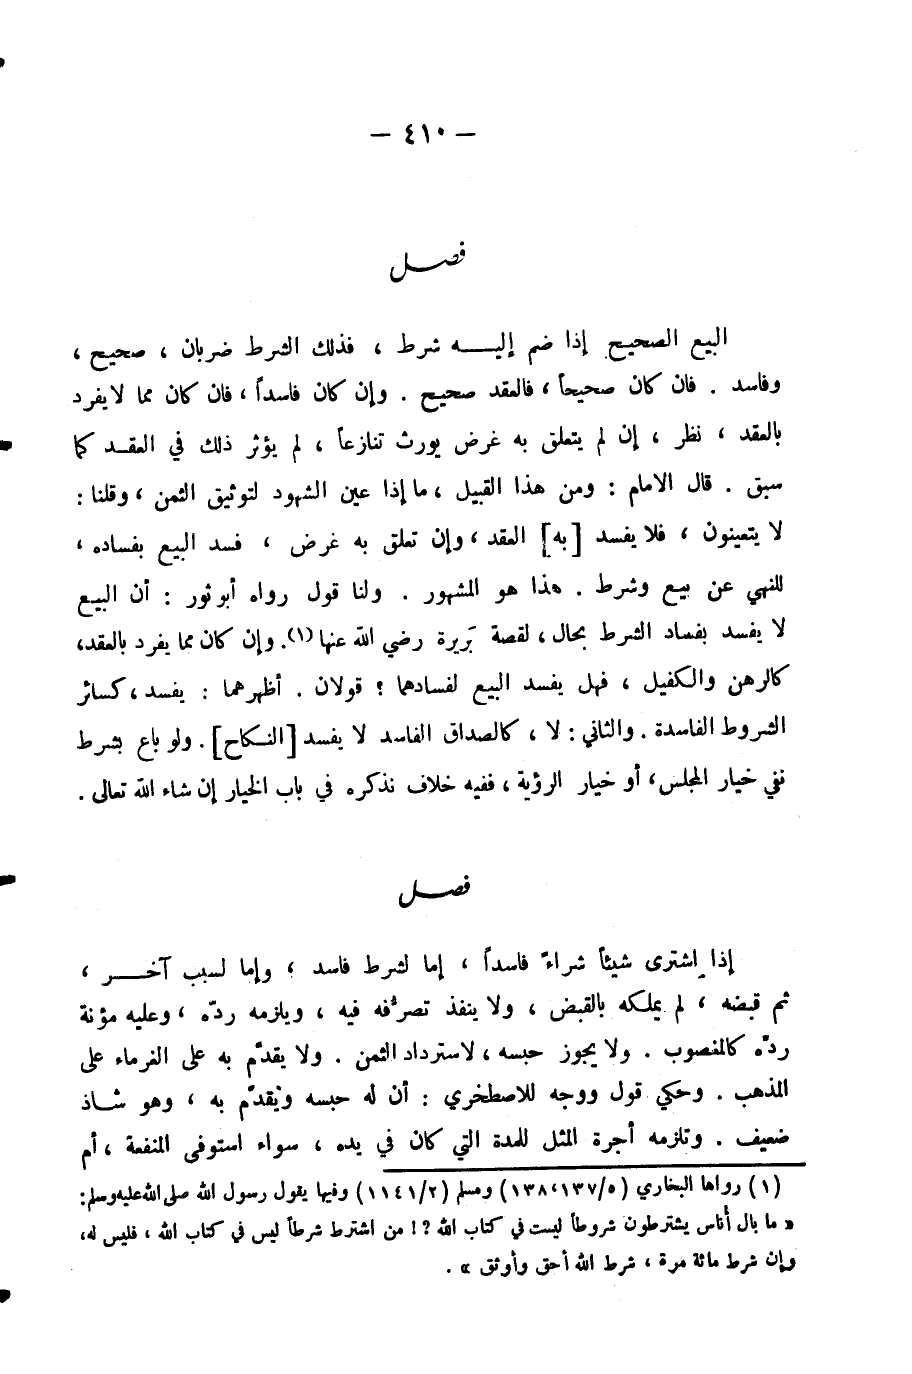 — ٤١٠ —
فصل
البيع الصحيح إذا ضم إليه شرط ، فذلك الشرط ضربان ، صحيح ،
وفاسد . فان كان صحيحاً ، فالعقد صحيح . وإن كان فاسداً ، فان كان مما لا يفرد
بالعقد ، نظر ، إن لم يتعلق به غرض يورث تنازعاً ، لم يؤثر ذلك في العقد كما
سبق . قال الامام : ومن هذا القبيل ، ما إذا عين الشهود لتوثيق الثمن ، وقلنا :
لا يتعينون ، فلا يفسد [به] العقد ، وإن تعلق به غرض ، فسد البيع بفساده ،
للنهي عن بيع وشرط . هذا هو المشهور . ولنا قول رواه أبو ثور : أن البيع
لا يفسد بفساد الشرط بحال ، لقصة بَريرة رضي الله عنها (١). وإن كان مما يفرد بالعقد،
كالرهن والكفيل ، فهل يفسد البيع لفسادهما ؟ قولان . أظهرهما : يفسد ، كسائر
الشروط الفاسدة . والثاني : لا ، كالصداق الفاسد لا يفسد [النكاح] . ولو باع بشرط
نفي خيار المجلس، أو خيار الرؤية ، ففيه خلاف نذكره في باب الخيار إن شاء الله تعالى .
فصل
إذا اشترى شيئاً شراءً فاسداً ، إما لشرط فاسد ، وإما لسبب آخر ،
ثم قبضه ، لم يملكه بالقبض ، ولا ينفذ تصرُّفه فيه ، ويلزمه ردّه ، وعليه مؤنة
ردّه كالمغصوب . ولا يجوز حبسه ، لاسترداد الثمن . ولا يقدّم به على الغرماء على
المذهب . وحكي قول ووجه للاصطخري : أن له حبسه ويُقدّم به ، وهو شاذ
ضعيف . وتلزمه أجرة المثل للمدة التي كان في يده ، سواء استوفى المنفعة ، أم
(١) رواها البخاري (٥/١٣٧،١٣٨) ومسلم (١١٤١/٢) وفيها يقول رسول الله صلى الله عليه وسلم:
« ما بال أُناس يشترطون شروطاً ليست في كتاب الله ؟! من اشترط شرطاً ليس في كتاب الله ، فليس له،
وإن شرط مائة مرة ، شرط الله أحق وأوثق » .